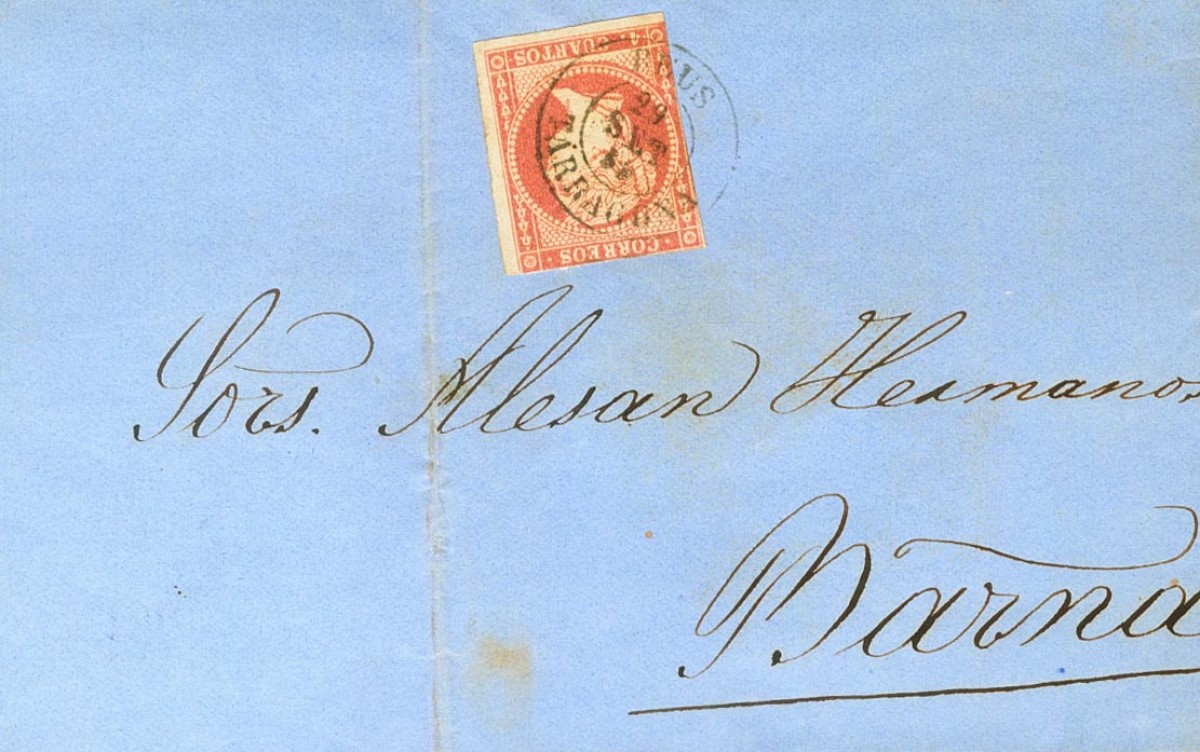 4 CUARTOS
CORREOS
REUS
29
SET
TARRAGONA
Sors. Alesan Hermanos
Barna